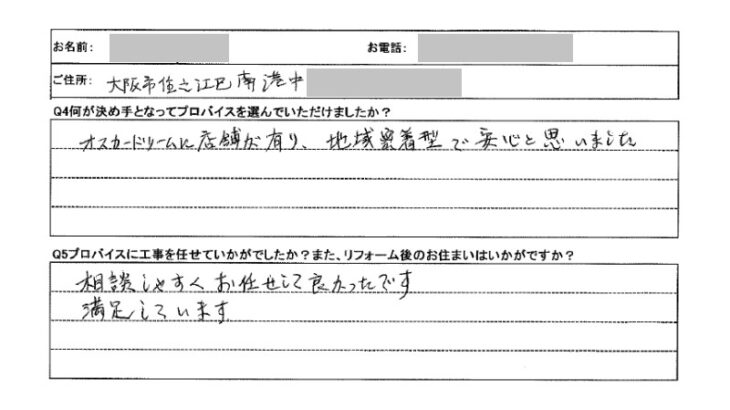 お名前: お電話:
ご住所: 大阪市住之江区南港中
Q4何が決め手となってプロバイスを選んでいただけましたか?
オスカードリームに店舗が有り、地域密着型で安心と思いました
Q5プロバイスに工事を任せていかがでしたか?また、リフォーム後のお住まいはいかがですか?
相談しやすくお任せして良かったです
満足しています